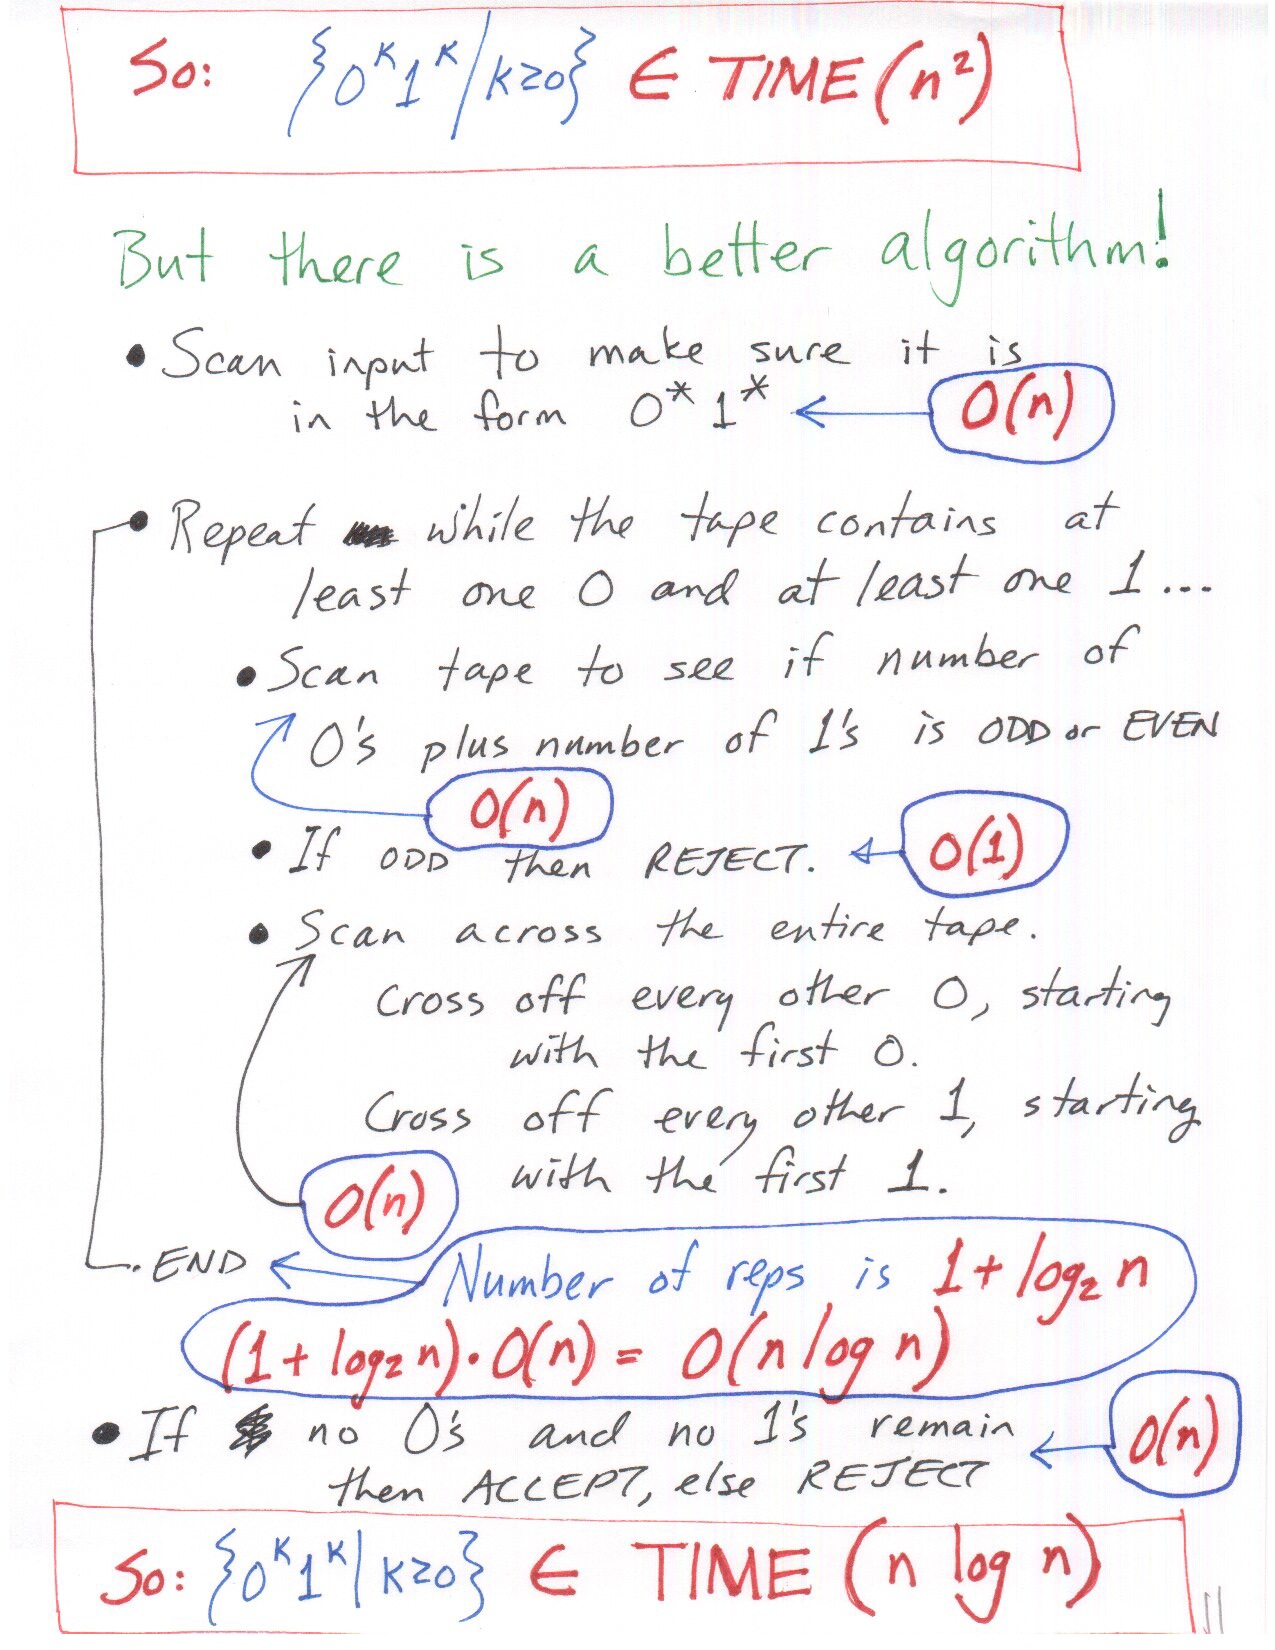 So: {0ᴷ1ᴷ/K≥0} ∈ TIME(n²)
But there is a better algorithm!
• Scan input to make sure it is
in the form 0*1* ← O(n)
• Repeat while the tape contains at
least one 0 and at least one 1...
• Scan tape to see if number of
0's plus number of 1's is ODD or EVEN
O(n)
• If ODD then REJECT. ← O(1)
• Scan across the entire tape.
Cross off every other 0, starting
with the first 0.
Cross off every other 1, starting
with the first 1.
O(n)
• END ← Number of reps is 1 + log₂ n
(1 + log₂ n) • O(n) = O(n log n)
• If no 0's and no 1's remain
then ACCEPT, else REJECT ← O(n)
So: {0ᴷ1ᴷ|K≥0} ∈ TIME (n log n)
11